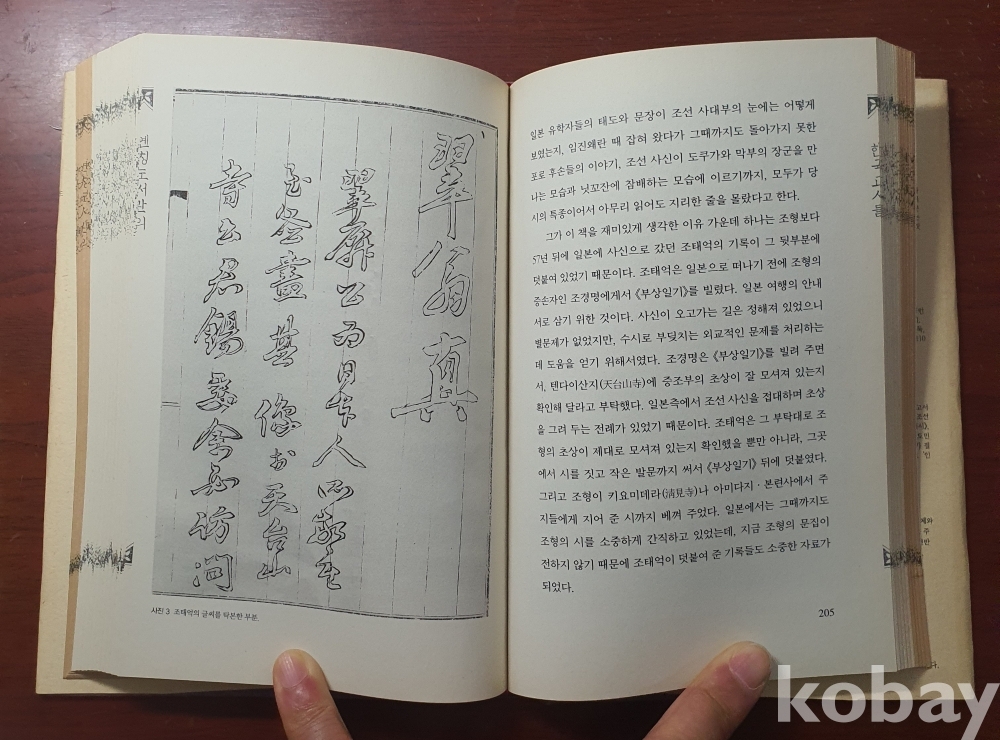 옌칭도서관의
한국고서들
翠屛公爲日本人所
於天台山
君錫
訪問
사진 3 조태억의 글씨를 탁본한 부분.
일본 유학자들의 태도와 문장이 조선 사대부의 눈에는 어떻게
보였는지, 임진왜란 때 잡혀 왔다가 그때까지도 돌아가지 못한
포로 후손들의 이야기, 조선 사신이 도쿠가와 막부의 장군을 만
나는 모습과 닛꼬잔에 참배하는 모습에 이르기까지, 모두가 당
시의 특종이어서 아무리 읽어도 지리한 줄을 몰랐다고 한다.
그가 이 책을 재미있게 생각한 이유 가운데 하나는 조형보다
57년 뒤에 일본에 사신으로 갔던 조태억의 기록이 그 뒷부분에
덧붙여 있었기 때문이다. 조태억은 일본으로 떠나기 전에 조형의
증손자인 조경명에게서 《부상일기》를 빌렸다. 일본 여행의 안내
서로 삼기 위한 것이다. 사신이 오고가는 길은 정해져 있었으니
별문제가 없었지만, 수시로 부딪치는 외교적인 문제를 처리하는
데 도움을 얻기 위해서였다. 조경명은 《부상일기》를 빌려 주면
서, 텐다이산지(天台山寺)에 증조부의 초상이 잘 모셔져 있는지
확인해 달라고 부탁했다. 일본측에서 조선 사신을 접대하며 초상
을 그려 두는 전례가 있었기 때문이다. 조태억은 그 부탁대로 조
형의 초상이 제대로 모셔져 있는지 확인했을 뿐만 아니라, 그곳
에서 시를 짓고 작은 발문까지 써서 《부상일기》 뒤에 덧붙였다.
그리고 조형이 키요미데라(淸見寺)나 아미다지·본련사에서 주
지들에게 지어 준 시까지 베껴 주었다. 일본에서는 그때까지도
조형의 시를 소중하게 간직하고 있었는데, 지금 조형의 문집이
전하지 않기 때문에 조태억이 덧붙여 준 기록들도 소중한 자료가
되었다.
205
kobay